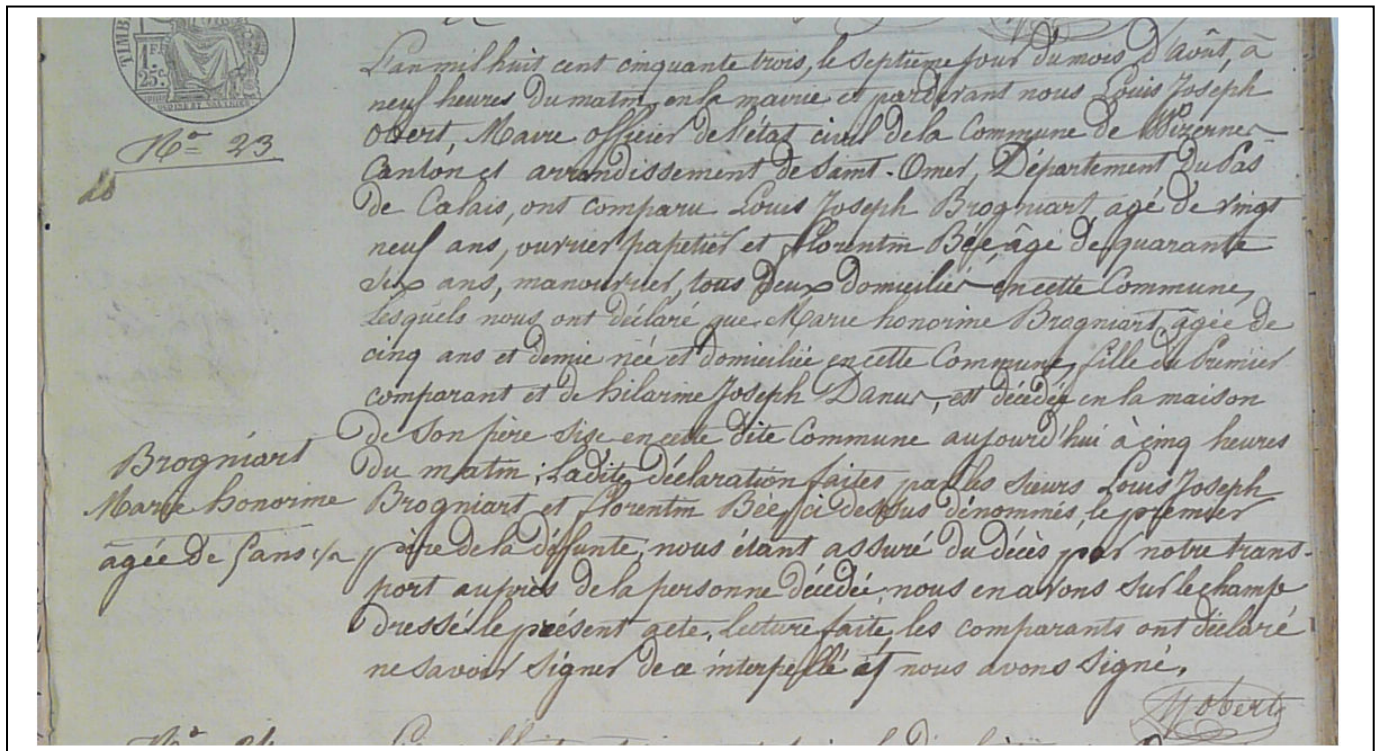 TIMB
1 F.
25c.
No 23
Brogniart
Marie honorine
agée de 5 ans 1/2
L'an mil huit cent cinquante trois, le septieme jour du mois d'Août, à
neuf heures du matin, en la mairie et pardevant nous Louis Joseph
Obert, Maire officier de l'état civil de la Commune de Wizernes
Canton et arrondissement de Saint-Omer, Département du Pas
de Calais, ont comparu Louis Joseph Brogniart agé de vingt
neuf ans, ouvrier papetier et florentin Bée, âgé de quarante
six ans, manouvrier, tous deux domiciliés en cette Commune,
lesquels nous ont déclaré que Marie honorine Brogniart, agée de
cinq ans et demie née et domiciliée en cette Commune, fille du Premier
comparant et de hilarine Joseph Danus, est décédée en la maison
de son père sise en cette dite Commune aujourd'hui à cinq heures
du matin; Ladite déclaration faites par les sieurs Louis Joseph
Brogniart et florentin Bée, ci dessus dénommés, le premier
père de la défunte; nous étant assuré du décès par notre trans-
port auprès de la personne décédée, nous en avons sur le champ
dressé le présent acte, lecture faite, les comparants ont déclaré
ne savoir signer de ce interpellé et nous avons signé.
Obert
No 24